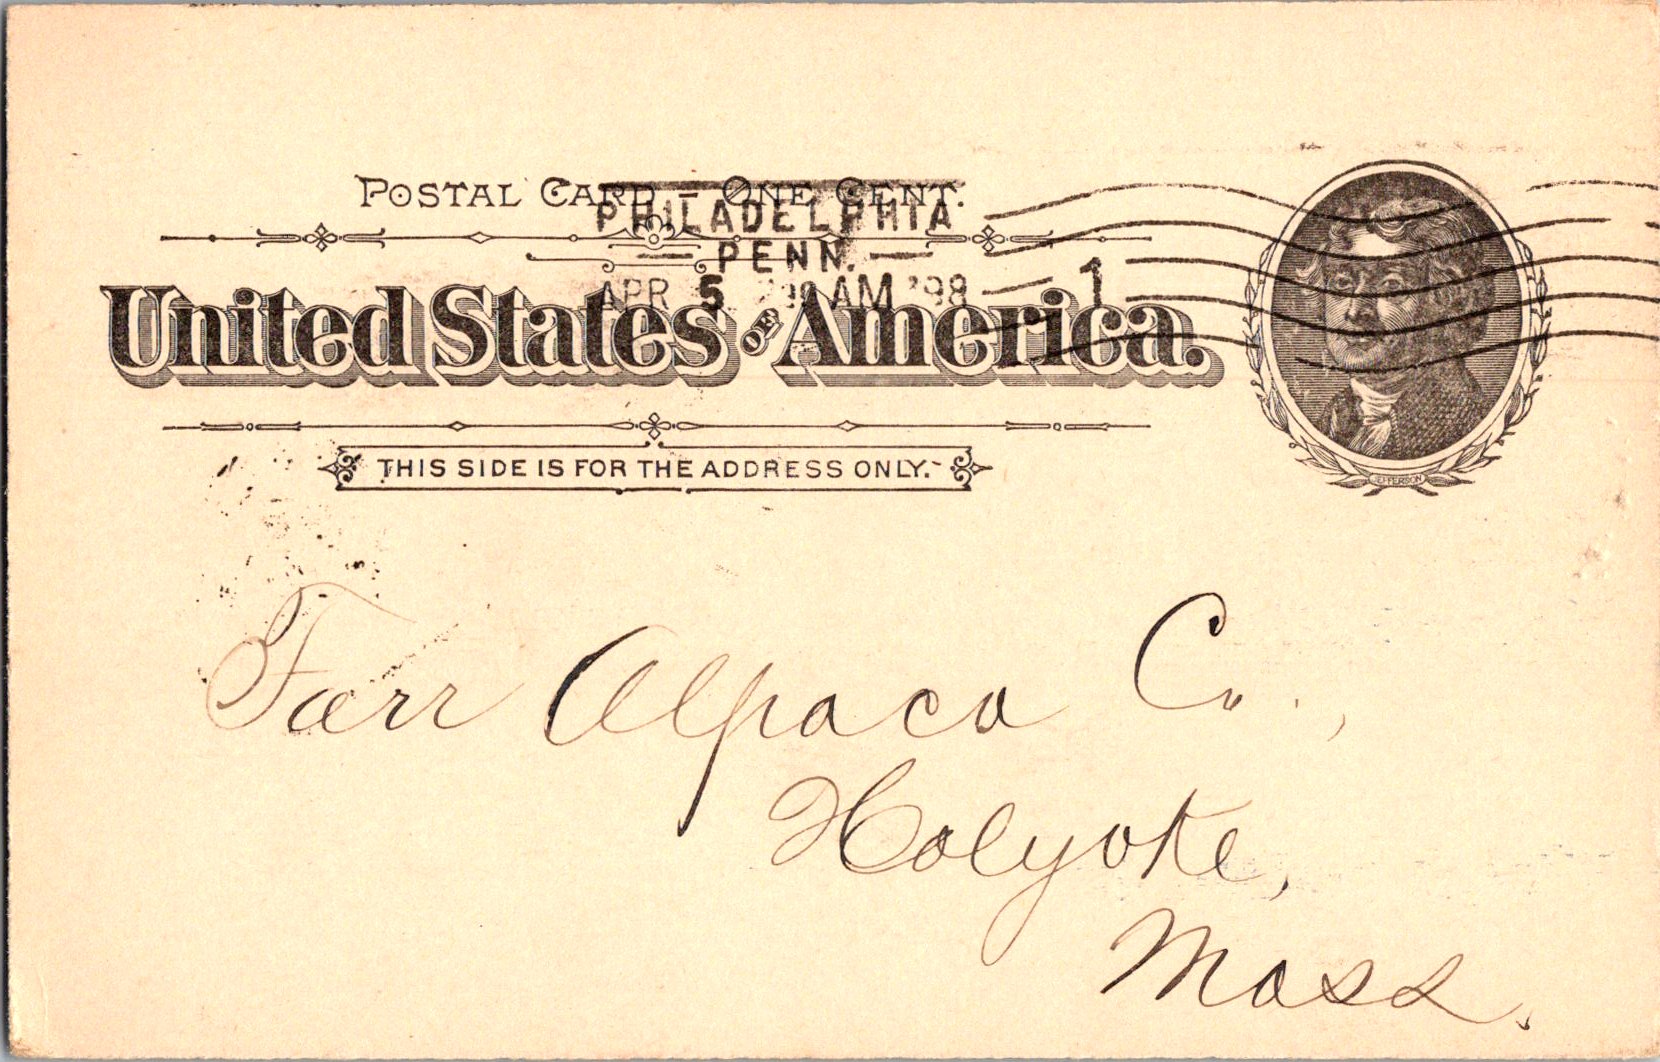 POSTAL CARD – ONE CENT.
PHILADELPHIA
PENN.
APR 5 AM '98
1
United States of America.
JEFFERSON
THIS SIDE IS FOR THE ADDRESS ONLY.
Farr Alpaca Co.,
Holyoke,
Mass.